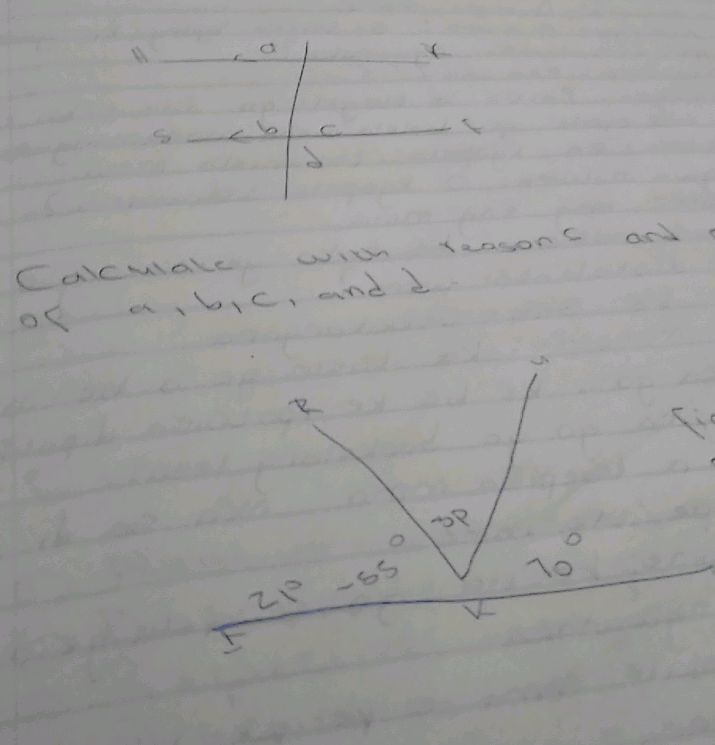 H a r
s b c t
d
Calculate with reasons and
of a, b, c, and d.
R
3p
2p -55° 70°